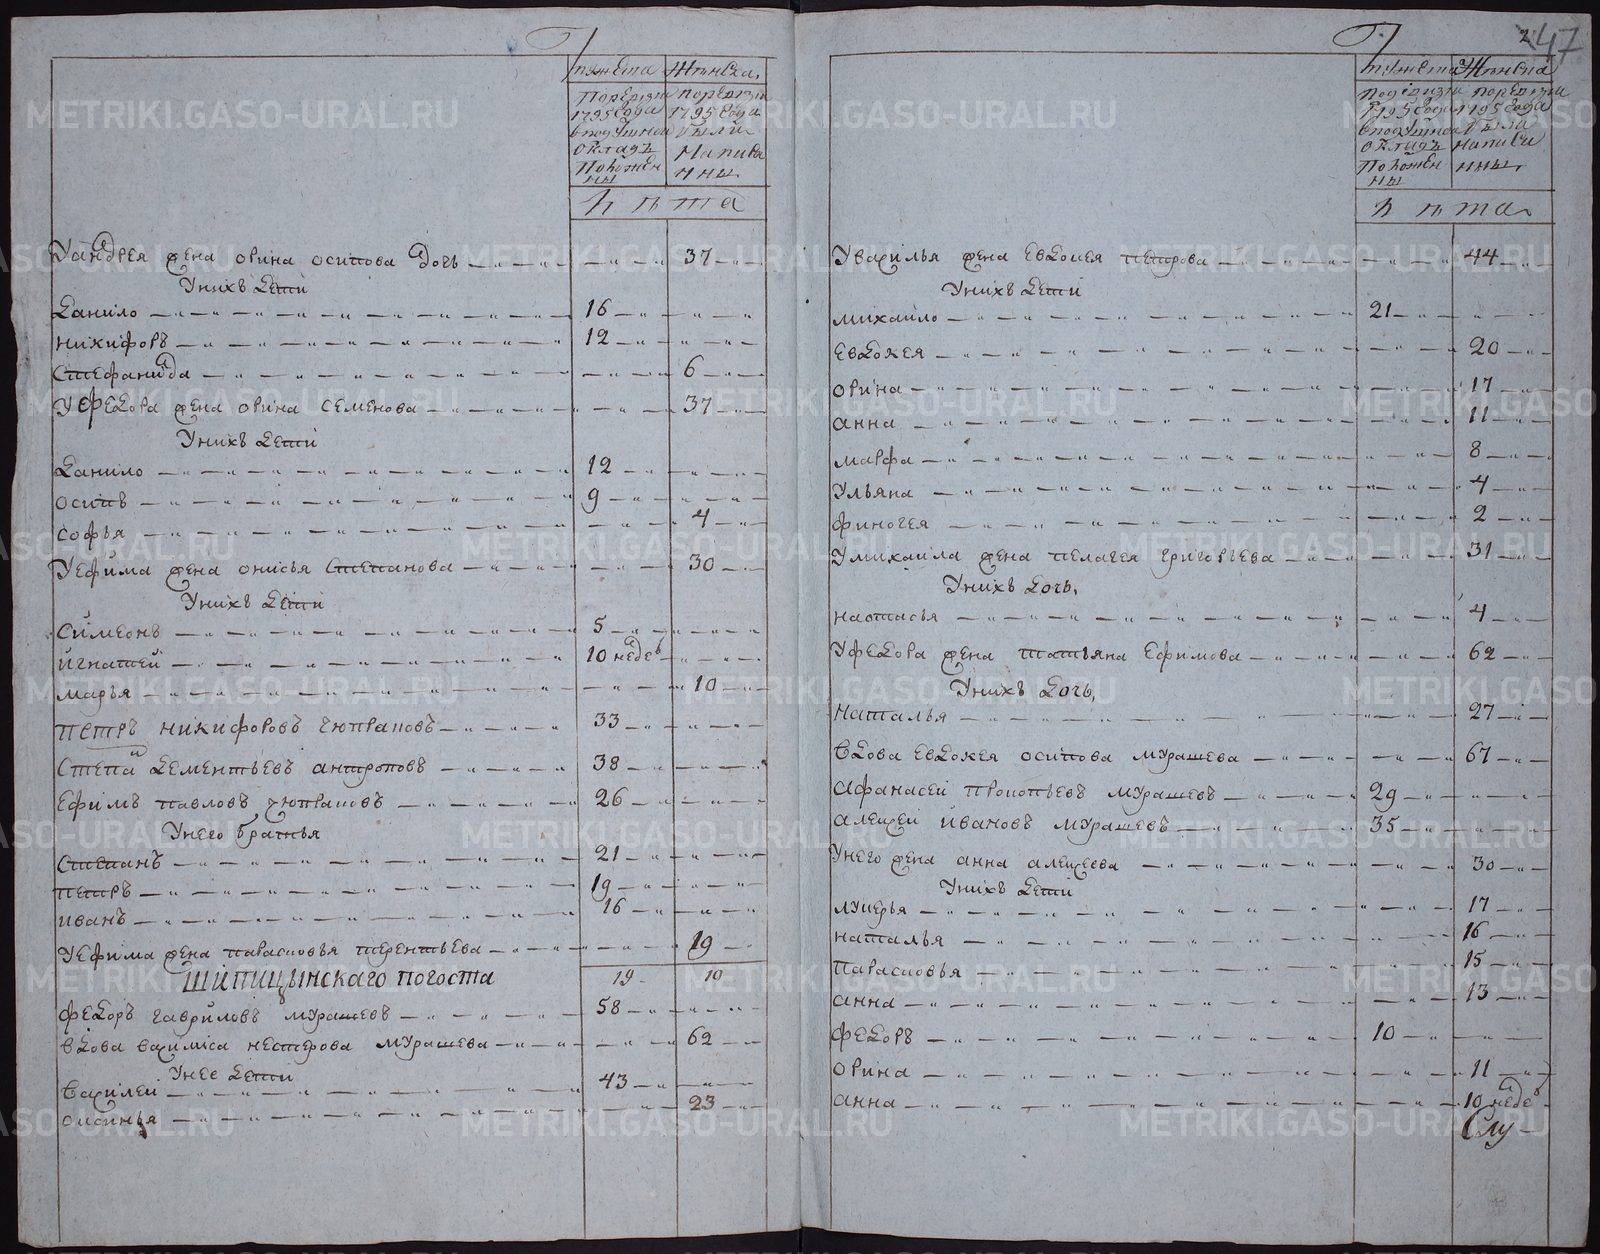 мужеска
женска,
По ревизии
1795 года
в подушной
окладъ
положен
ны
по ревизии
1795 года
были
написа
нны
лѣта
У андрея жена орина осипова дочь 37
У нихъ дети
данило 16
никифоръ 12
стефанида 6
У федора жена орина семенова 37
У нихъ дети
данило 12
осипъ 9
софья 4
У ефима жена онисья степанова 30
У нихъ дети
симеонъ 5
игнатей 10 недель
марья 10
петръ никифоровъ 33
степан дементьевъ антроповъ 38
ефимъ павловъ 26
У него братья
степанъ 21
петръ 19
иванъ 16
У ефима жена парасковья терентьева 19
Шипицынскаго погоста
19 10
федоръ гавриловъ мурашевъ 58
вдова василиса нестерова мурашева 62
У нее дети
василей 43
аксинья 23
247
мужеска
женска
по ревизии
1795 года
в подушной
окладъ
положен
ны
по ревизии
1795 года
были
написа
нны,
лѣта
У василья жена евдокея петрова 44
У нихъ дети
михайло 21
евдокея 20
орина 17
анна 11
марфа 8
ульяна 4
финогея 2
У михаила жена пелагея григорьева 31
У нихъ дочь,
настасья 4
У федора жена татьяна ефимова 62
У нихъ дочь,
наталья 27
вдова евдокея осипова мурашева 67
афанасей прокопьевъ мурашевъ 29
алексей ивановъ мурашевъ 35
У него жена анна алексеева 30
У нихъ дети
лукерья 17
наталья 16
парасковья 15
анна 13
федоръ 10
орина 11
анна 10 недель
METRIKI.GASO-URAL.RU